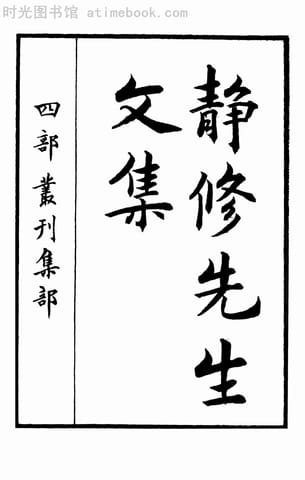 时光图书馆 atimebook.com
静修先生
文集
四部叢刊集部